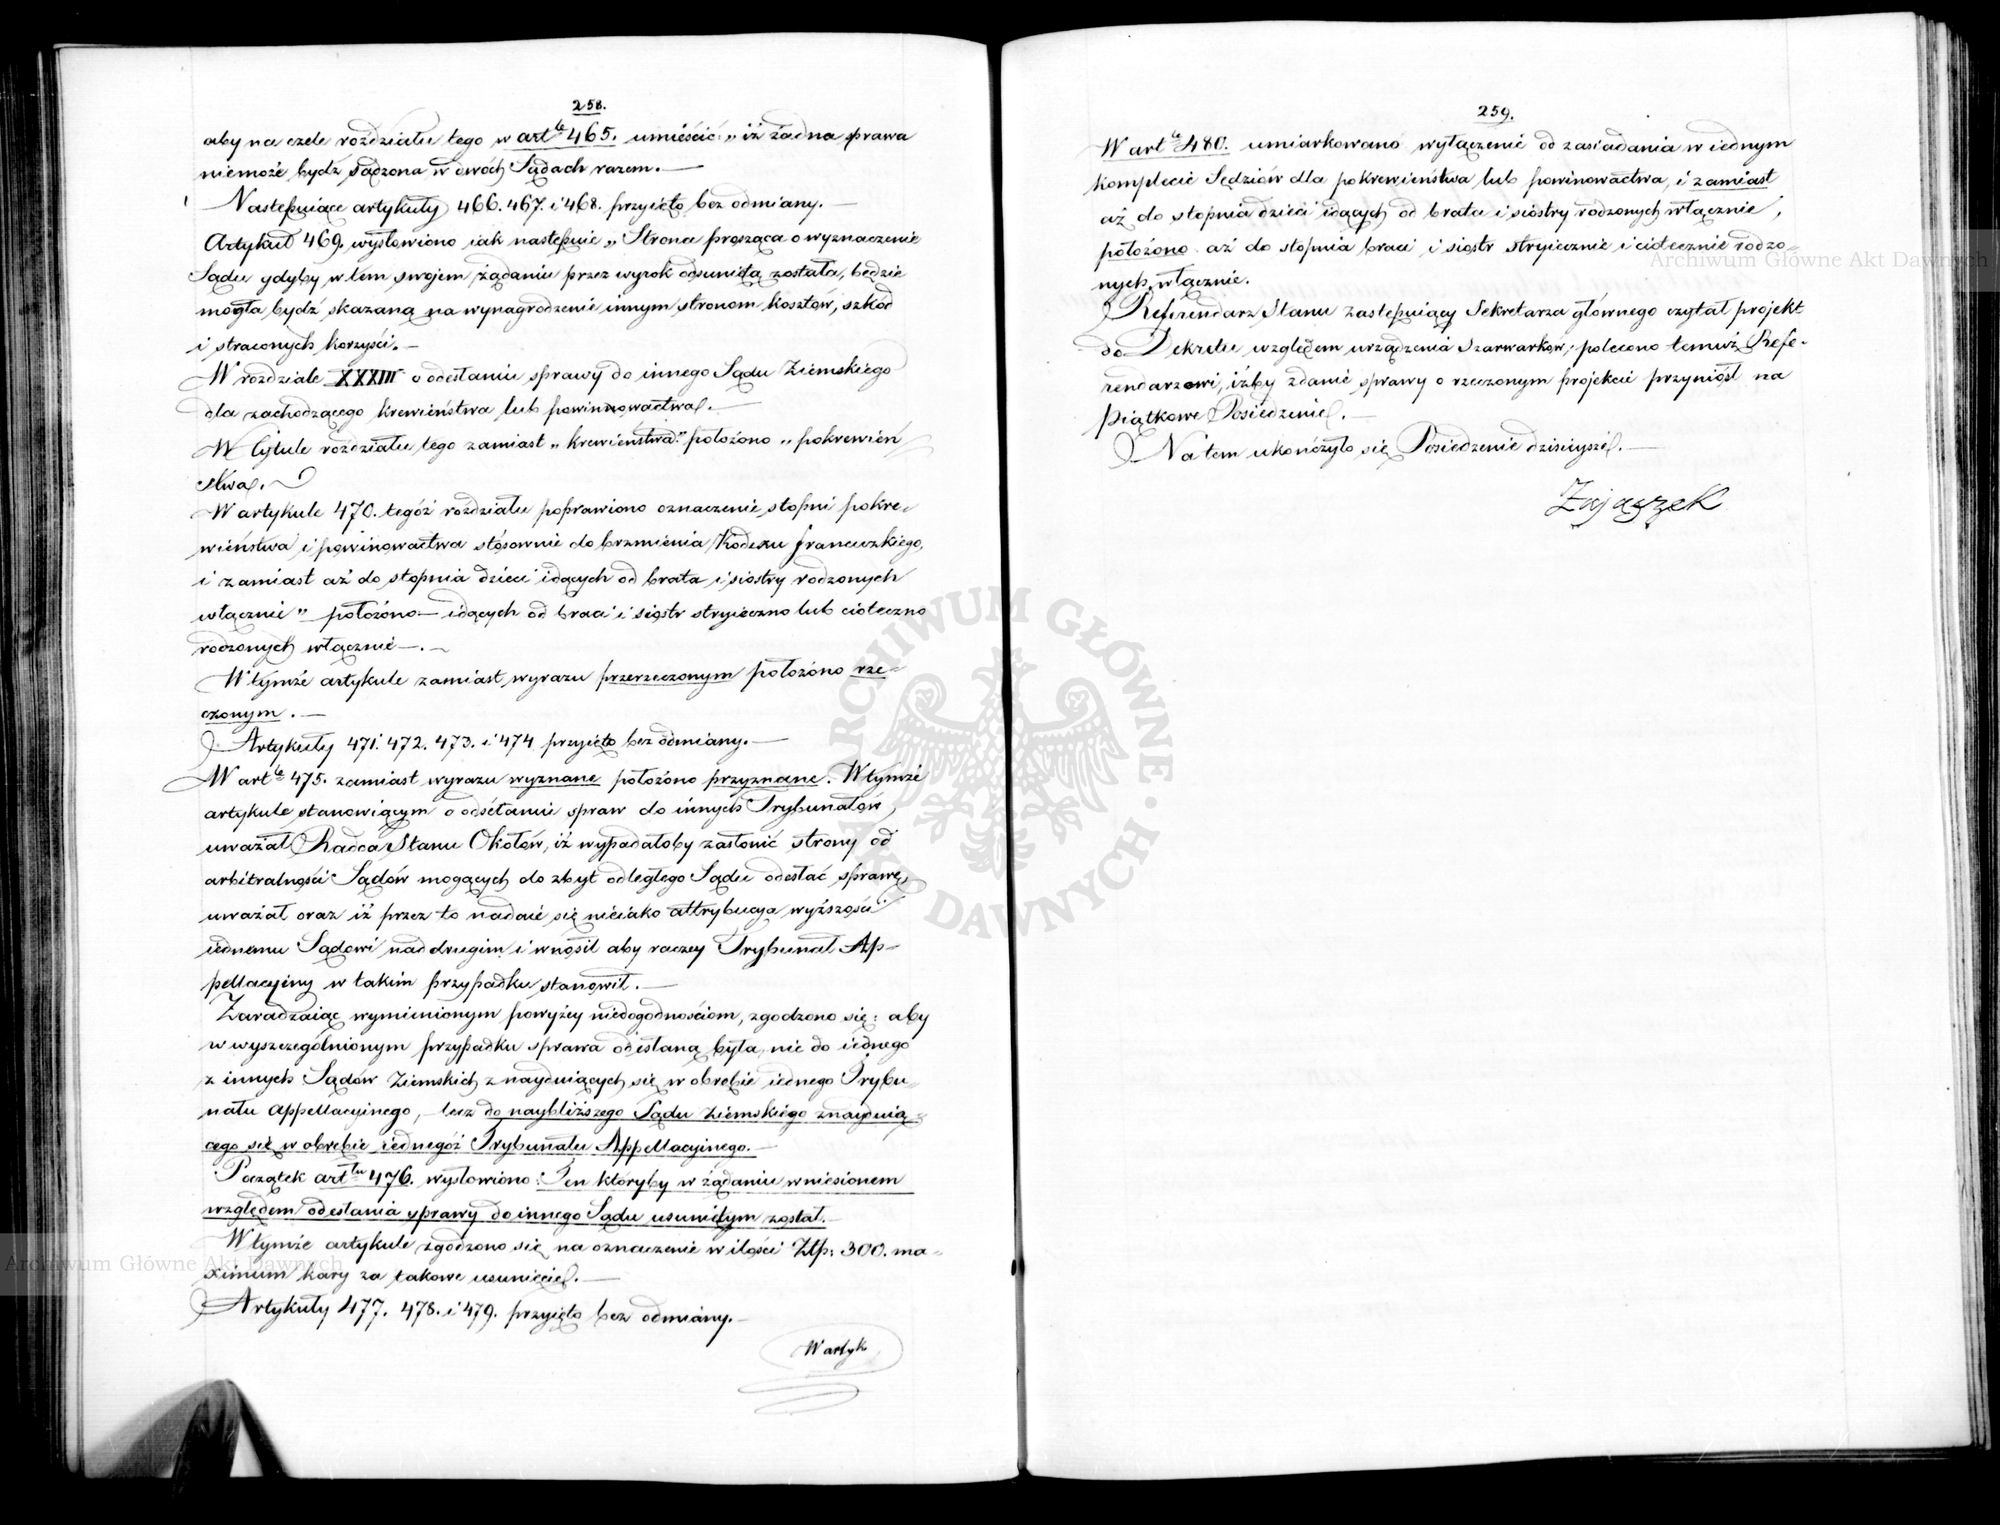 258.
aby na czele rozdziału tego w art<sup>le</sup> 465. umieścić: „iż żadna sprawa
niemoże bydź sądzona w dwóch Sądach razem. —
Następuiące artykuły 466. 467. i 468. przyięto bez odmiany. —
Artykuł 469. wysłowiono iak następuie „Strona prosząca o wyznaczenie
Sądu gdyby w tem swojem żądaniu przez wyrok odsuniętą została, będzie
mogła bydź skazaną na wynagrodzenie innym stronom kosztów, szkód
i straconych korzyści. —
W rozdziale XXXIII o odesłaniu sprawy do innego Sądu Ziemskiego
dla zachodzącego krewieństwa lub powinnowactwa. —
W tytule rozdziału tego zamiast „krewieństwa" położono „pokrewień
stwa.
W artykule 470. tegóż rozdziału poprawiono oznaczenie stopni pokre-
wieństwa i powinowactwa stósownie do brzmienia Kodexu francuzkiego,
i zamiast aż do stopnia dzieci idących od brata i siostry rodzonych
włącznie" położono — idących od braci i sióstr stryieczno lub cioteczno
rodzonych włącznie —. —
W tymże artykule zamiast wyrazu przerzeczonym położono rze-
czonym. —
Artykuły 471. 472. 473. i 474 przyięto bez odmiany. —
W art<sup>le</sup> 475. zamiast wyrazu wyznane położono przyznane. W tymże
artykule stanowiącym o odsełaniu spraw do innych Trybunałów,
uważał Radca Stanu Okołów, iż wypadałoby zasłonić strony od
arbitralności Sądów mogących do zbyt odległego Sądu odesłać sprawę,
uważał oraz iż przez to nadaie się nieiako attrybucya wyższości
iednemu Sądowi nad drugim i wnosił aby raczey Trybunał Ap-
pellacyiny w takim przypadku stanowił. —
Zaradzaiąc wymienionym powyżey niedogodnościom, zgodzono się: aby
w wyszczególnionym przypadku sprawa odesłaną była, nie do iednego
z innych Sądów Ziemskich znayduiących się w obrębie iednego Trybu-
nału Appellacyinego, lecz do naybliższego Sądu Ziemskiego znayduią-
cego się w obrębie iednegóż Trybunału Appellacyinego. —
Początek art<sup>łu</sup> 476. wysłowiono: Ten któryby w żądaniu wniesionem
względem odesłania sprawy do innego Sądu usuniętym został. —
W tymże artykule zgodzono się na oznaczenie w ilości Złp: 300. ma-
ximum kary za takowe usunięcie. —
Artykuły 477. 478. i 479. przyięto bez odmiany. —
W artyk
259.
W art<sup>le</sup> 480. umiarkowano wyłączenie od zasiadania w iednym
komplecie Sędziów dla pokrewieństwa lub powinowactwa, i zamiast
aż do stopnia dzieci idących od brata i siostry rodzonych włącznie,
położono aż do stopnia braci i sióstr stryiecznie i ciotecznie rodzo-
nych włącznie.
Referendarz Stanu zastępuiący Sekretarza głównego czytał projekt
do Dekretu względem urządzenia Szarwarków; polecono temuż Refe-
rendarzowi, iżby zdanie sprawy o rzeczonym projekcie przyniósł na
Piątkowe Posiedzenie. —
Na tem ukończyło się Posiedzenie dzisieysze. —
Zajączek
ARCHIWUM GŁÓWNE AKT DAWNYCH
Archiwum Główne Akt Dawnych
Archiwum Główne Akt Dawnych